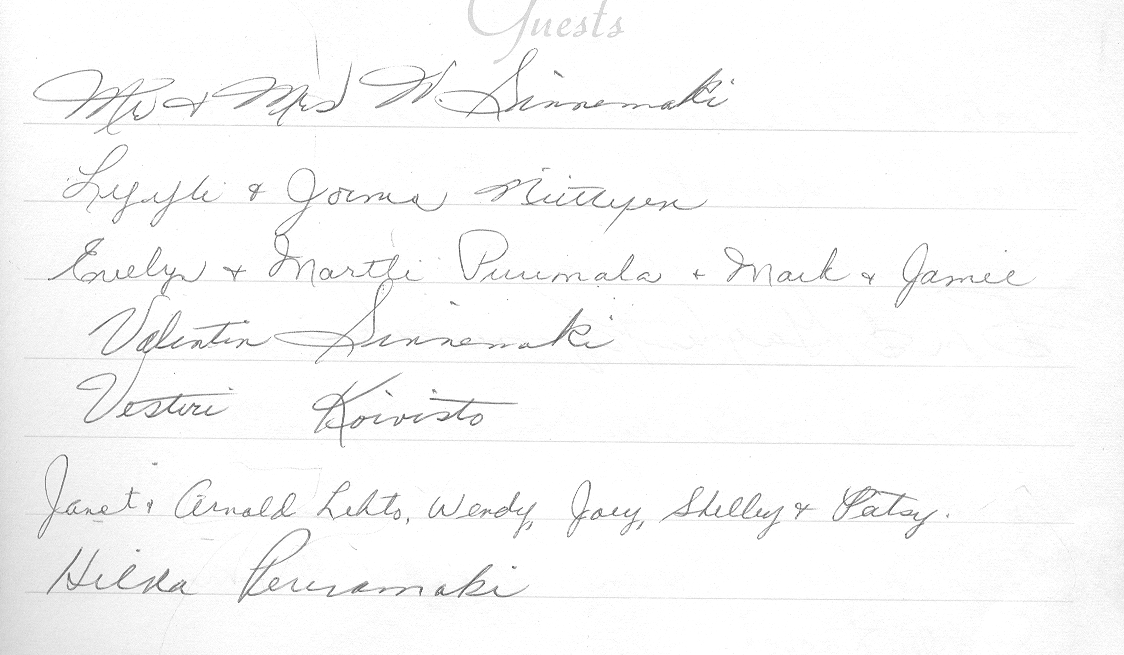 Guests
Mr & Mrs W. Sinnemaki
& Jorma
Evelyn & Martti Purimala & Mark & Jamie
Valentin Sinnemaki
Vesteri Koivisto
Janet & Arnold Lehto, Wendy, Joey, Shelley & Patsy.
Hilda